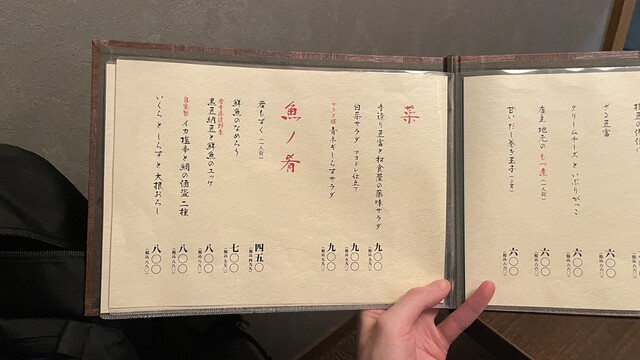 ざる豆富
クリームチーズといぶりがっこ
六〇〇
(税込六六〇)
産直 地元のもつ煮(一人前)
六〇〇
(税込六六〇)
甘いだし巻き玉子(小室)
六〇〇
(税込六六〇)
菜
手造り豆富と和食屋の薬味サラダ
九〇〇
白菜サラダ マヨドレ仕立て
九〇〇
サラダ槌 青ネギしらすサラダ
九〇〇
魚ノ肴
岩もずく(一人前)
四五〇
(税込四九五)
鮮魚のなめろう
七〇〇
黒豆納豆と鮮魚のユッケ
八〇〇
(税込八八〇)
自家製 イカ塩辛と鯛の酒盗二種
八〇〇
(税込八八〇)
いくらとしらすと大根おろし
八〇〇
(税込八八〇)